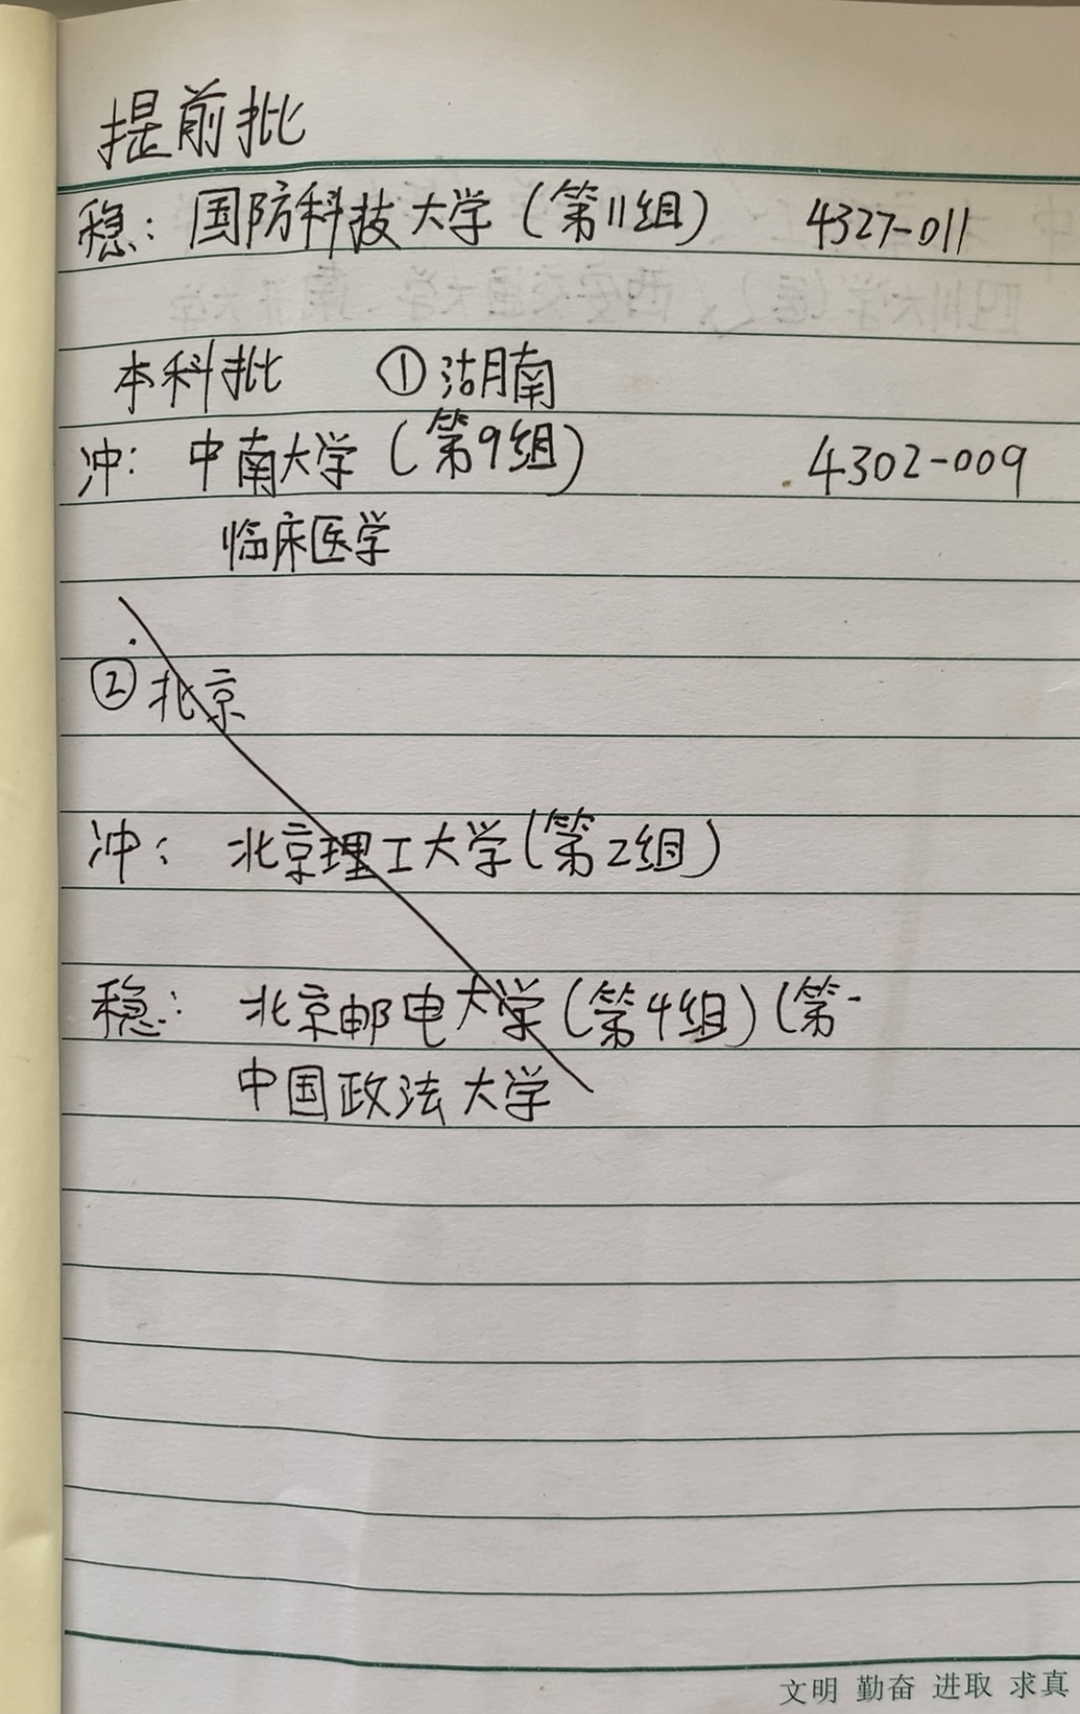 提前批
稳: 国防科技大学(第11组) 4327-011
本科批 ①湖南
冲: 中南大学(第9组) 4302-009
临床医学
②北京
冲: 北京理工大学(第2组)
稳: 北京邮电大学(第4组)(第
中国政法大学
文明 勤奋 进取 求真